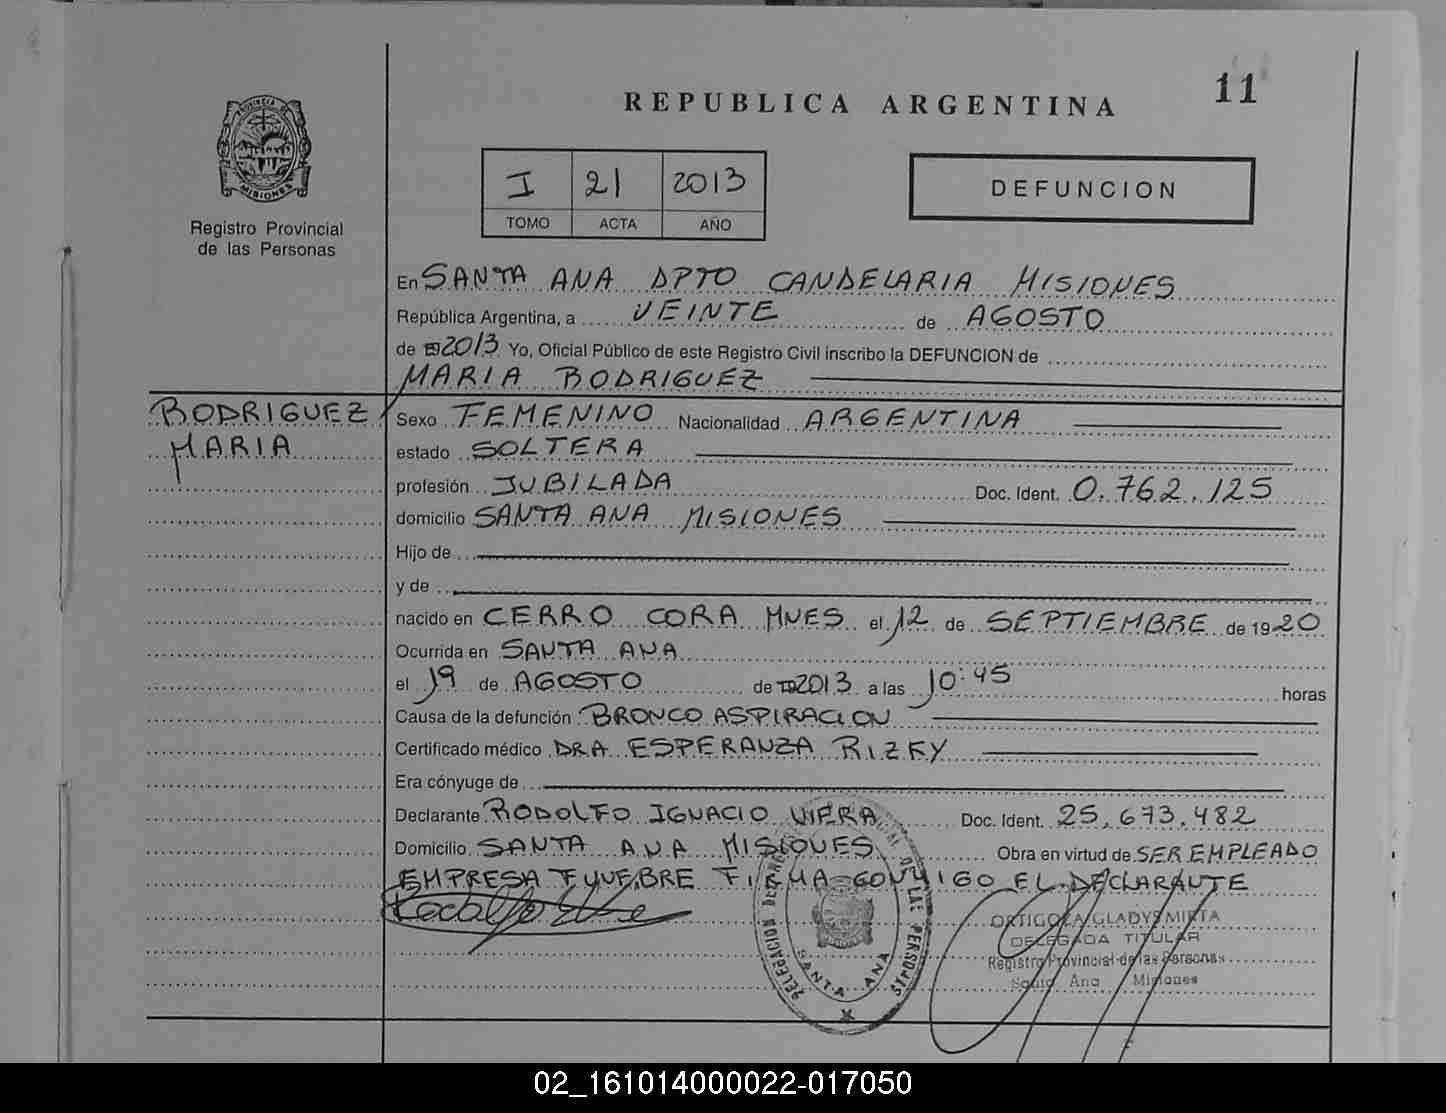 11
REPUBLICA ARGENTINA
PROVINCIA DE
MISIONES
Registro Provincial
de las Personas
I 21 2013
TOMO ACTA AÑO
DEFUNCION
En SANTA ANA DPTO CANDELARIA MISIONES
República Argentina, a VEINTE de AGOSTO
de 2013 Yo, Oficial Público de este Registro Civil inscribo la DEFUNCION de
MARIA RODRIGUEZ
RODRIGUEZ
MARIA
Sexo FEMENINO Nacionalidad ARGENTINA
estado SOLTERA
profesión JUBILADA Doc. Ident. 0.762.125
domicilio SANTA ANA MISIONES
Hijo de
y de
nacido en CERRO CORA MNES el 12 de SEPTIEMBRE de 1920
Ocurrida en SANTA ANA
el 19 de AGOSTO de 2013 a las 10:45 horas
Causa de la defunción BRONCO ASPIRACION
Certificado médico DRA ESPERANZA RIZKY
Era cónyuge de
Declarante RODOLFO IGNACIO VIERA Doc. Ident. 25.673.482
Domicilio SANTA ANA MISIONES Obra en virtud de SER EMPLEADO
EMPRESA FUNEBRE FIRMA CONMIGO EL DECLARANTE
ORTIGOZA GLADYS MIRTA
DELEGADA TITULAR
Registro Provincial de las Personas
Santa Ana Misiones
DE LAS PERSONAS
DELEGACION
SANTA ANA
02_161014000022-017050